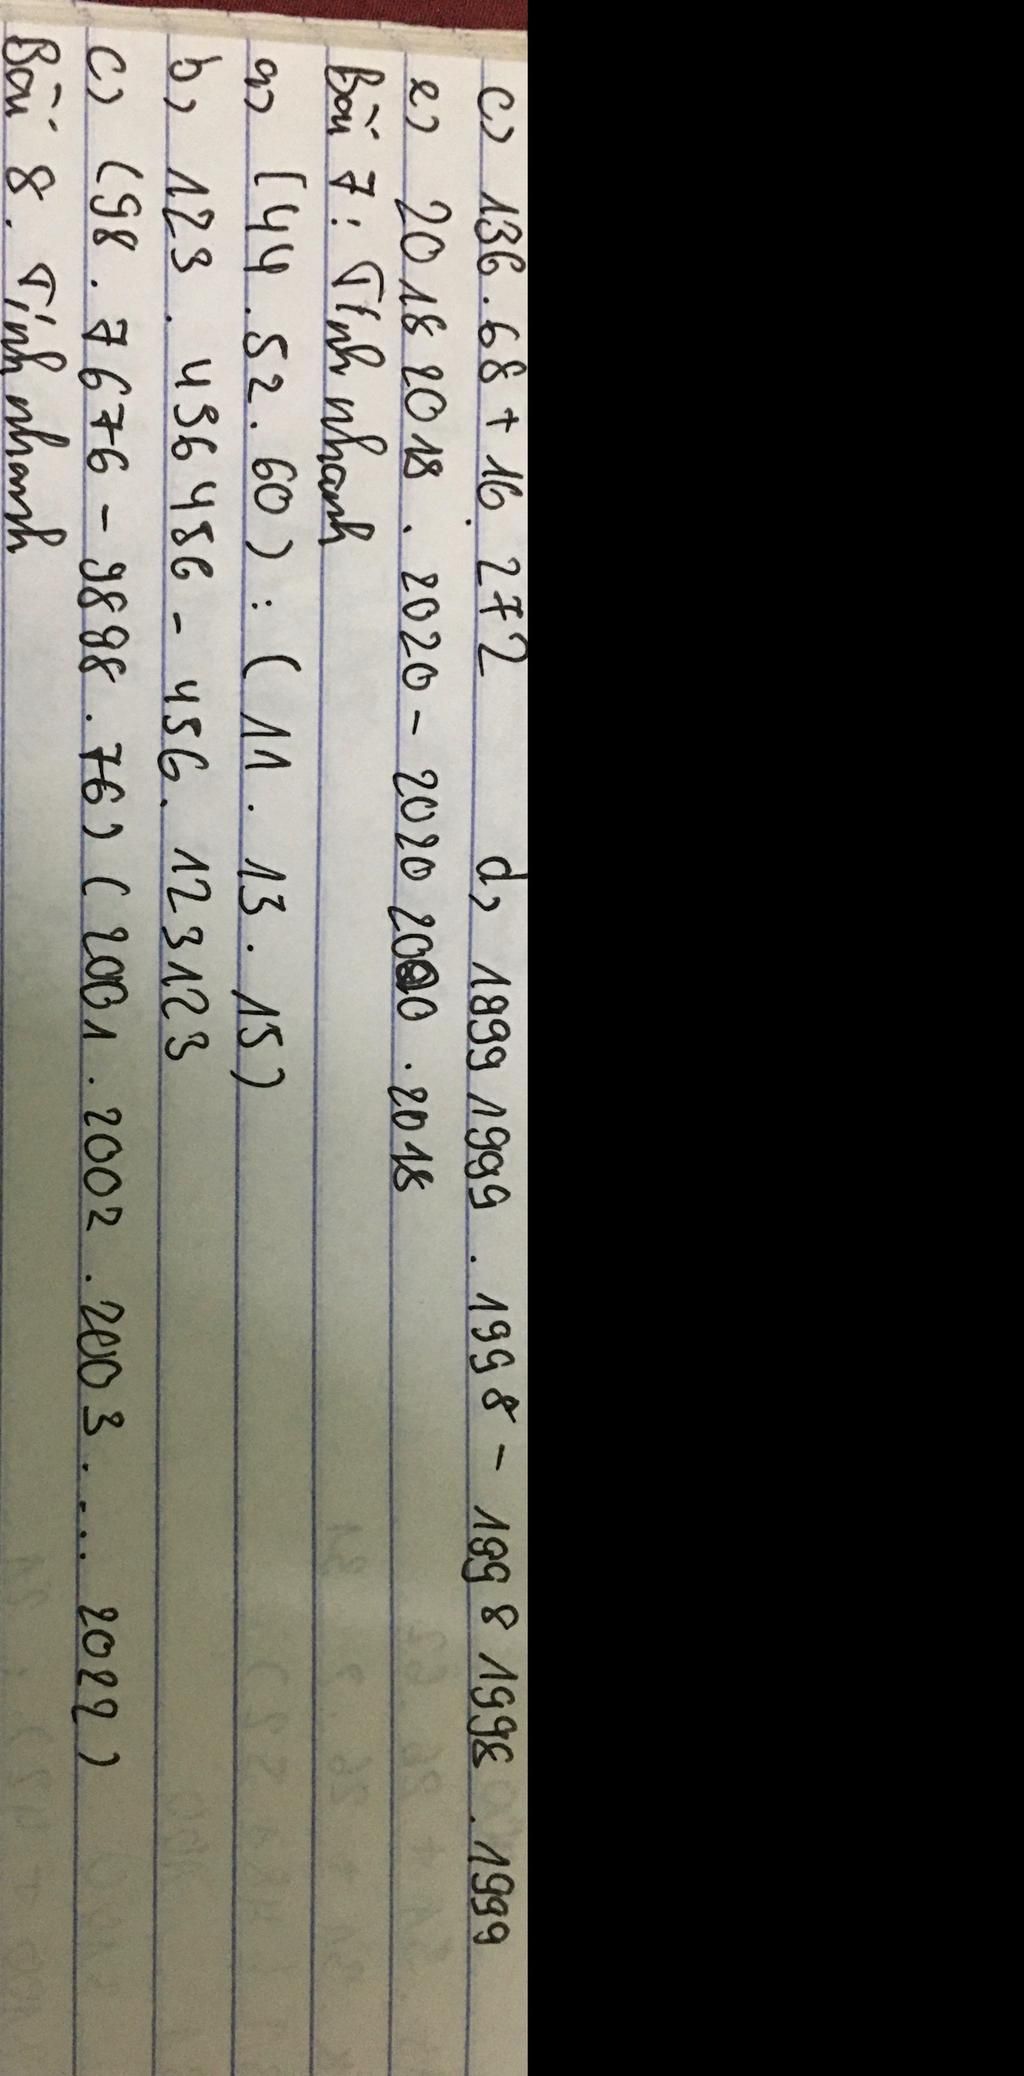 c) 136.68 + 16.272 d, 1999 1999 . 1998 - 1998 1998 .1999
e) 2018 2018 . 2020 - 2020 2020 . 2018
Bài 7: Tính nhanh
a) (44 .52. 60) : ( 11 . 13 . 15)
b) 123 . 456 456 - 456. 123123
c) (98 . 7676 - 9898 . 76) ( 2001 . 2002 . 2003 .... 2022)
Bài 8. Tính nhanh